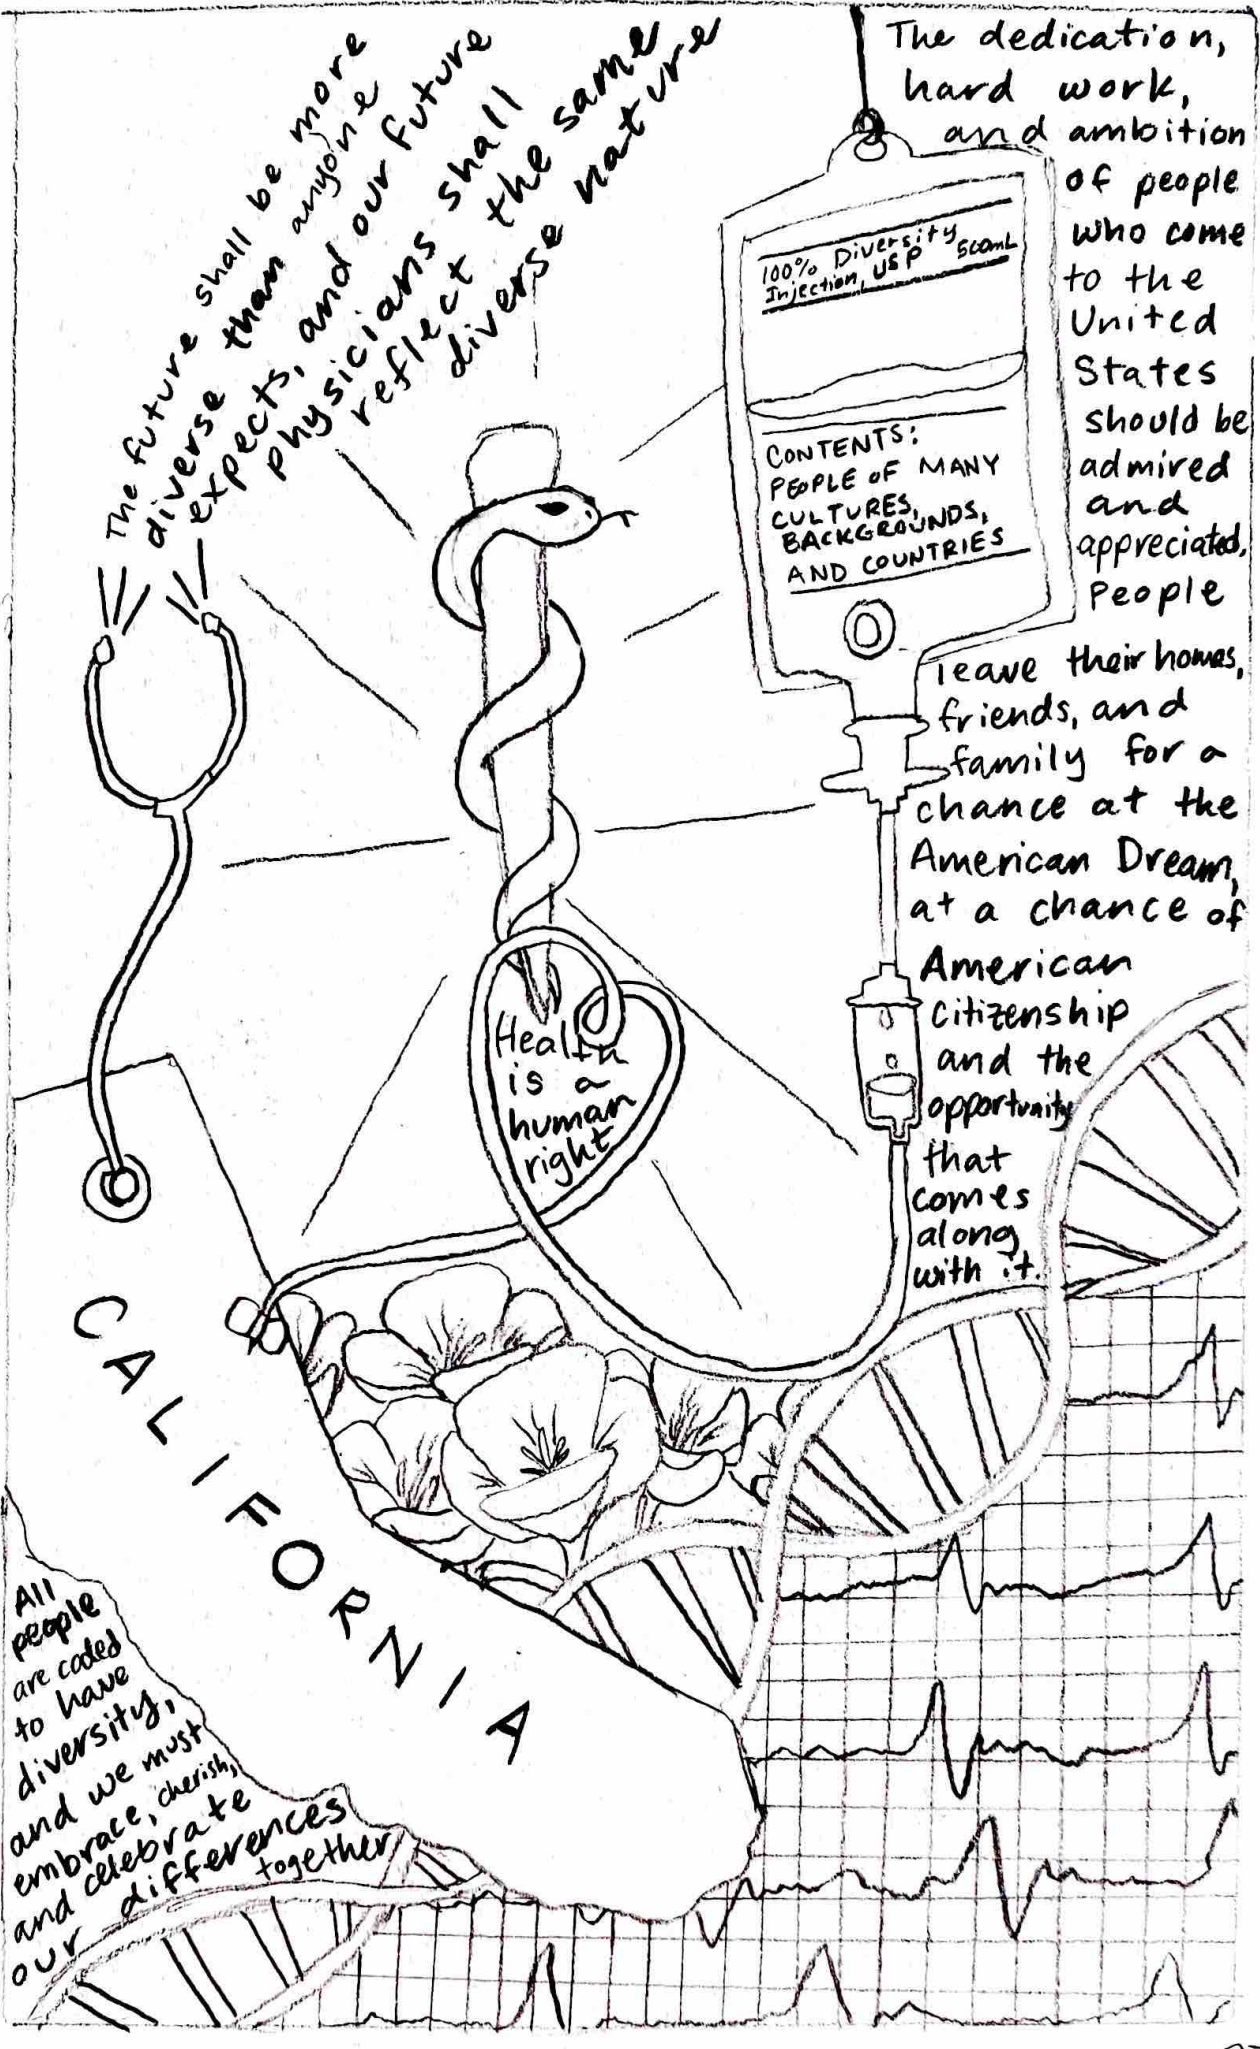 The future shall be more
diverse than anyone
expects, and our future
physicians shall
reflect the same
diverse nature
The dedication,
hard work,
and ambition
of people
who come
to the
United
States
should be
admired
and
appreciated.
People
leave their homes,
friends, and
family for a
chance at the
American Dream,
at a chance of
American
citizenship
and the
opportunity
that
comes
along
with it.
100% Diversity 500mL
Injection, USP
CONTENTS:
PEOPLE OF MANY
CULTURES,
BACKGROUNDS,
AND COUNTRIES
Health
is a
human
right
CALIFORNIA
All
people
are coded
to have
diversity,
and we must
embrace, cherish,
and celebrate
our differences
together